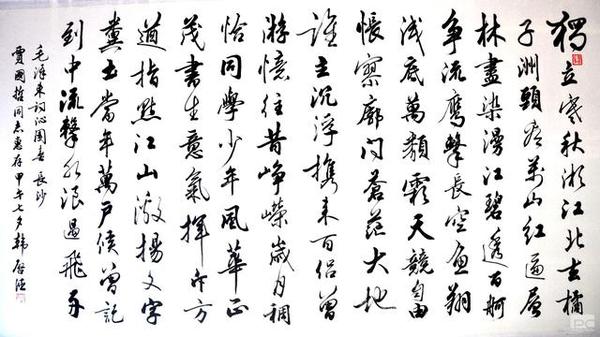 獨立寒秋湘江北去橘
子洲頭看萬山紅遍層
林盡染漫江碧透百舸
争流鷹擊長空魚翔
浅底萬類霜天競自由
悵寥廓问蒼茫大地
誰主沉浮携来百侣曾
游憶往昔崢嶸歲月稠
恰同學少年風華正
茂書生意氣揮斥方
遒指點江山激揚文字
糞土當年萬户侯曾記
到中流擊水浪遏飛舟
毛澤東詞沁園春長沙
賈國哲同志惠存甲午七夕韓启德